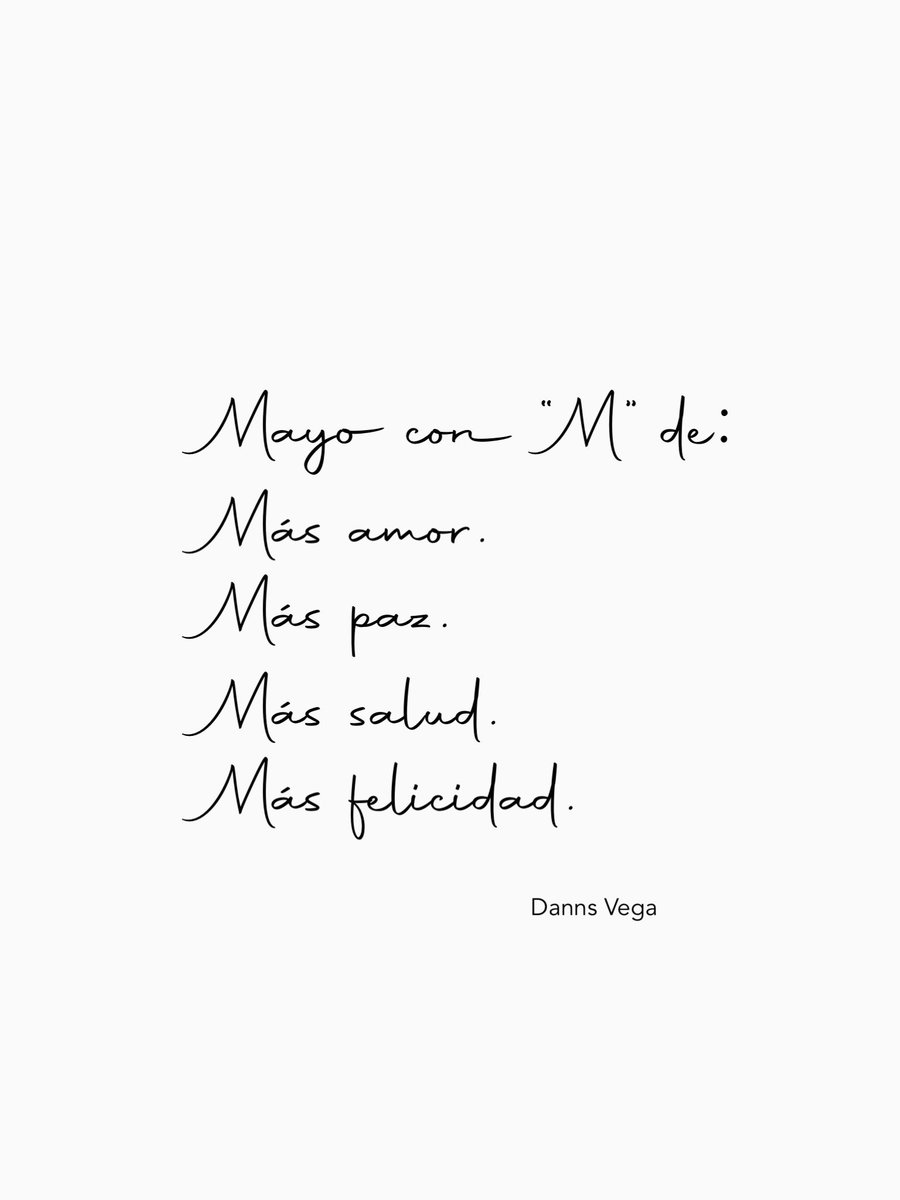 Mayo con "M" de:
Más amor.
Más paz.
Más salud.
Más felicidad.
Danns Vega